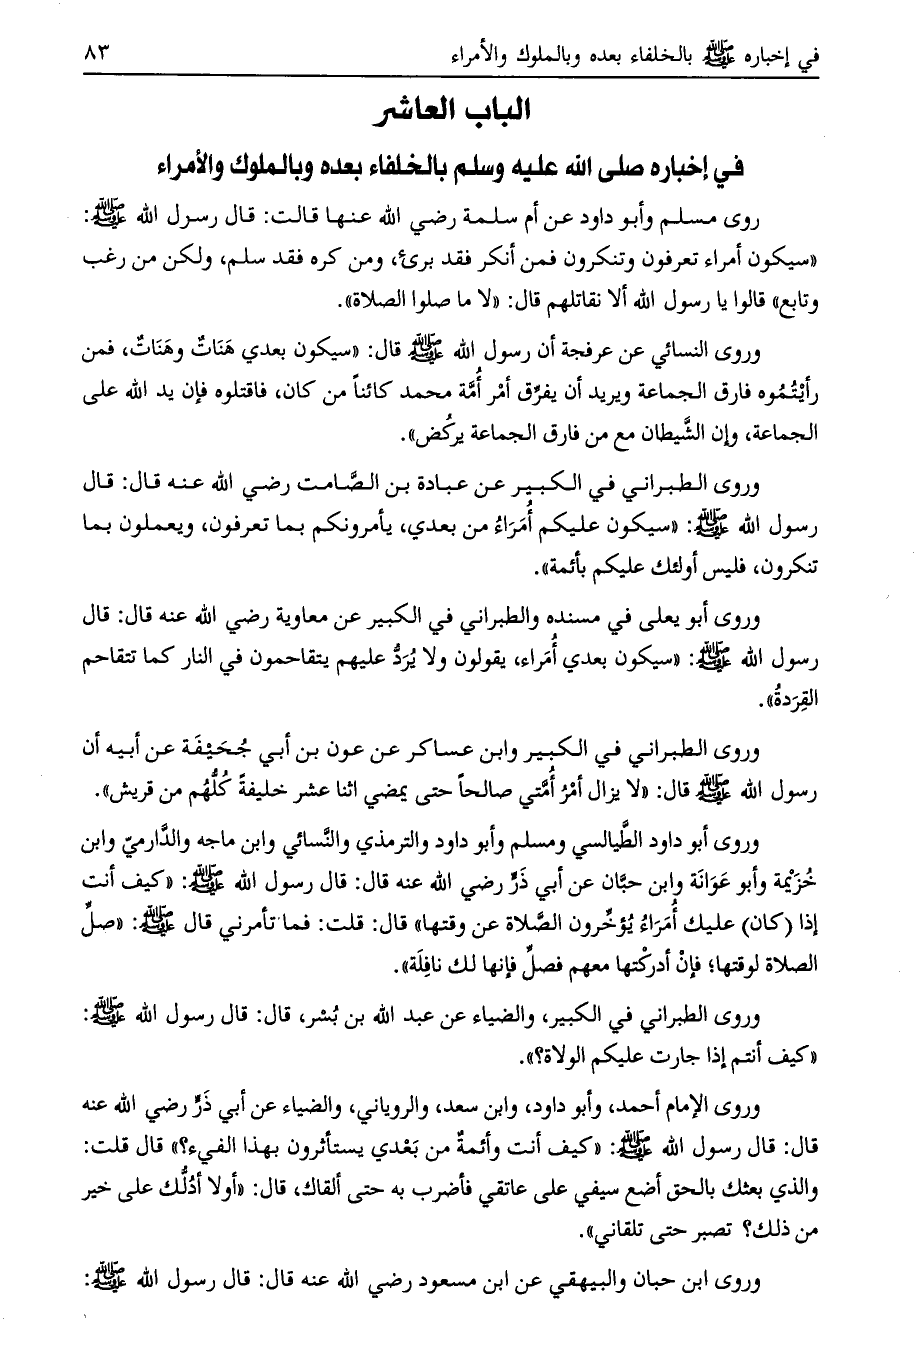 في إخباره ﷺ بالخلفاء بعده وبالملوك والأمراء ٨٣
الباب العاشر
في إخباره صلى الله عليه وسلم بالخلفاء بعده وبالملوك والأمراء
روى مسلم وأبو داود عن أم سلمة رضي الله عنها قالت: قال رسول الله ﷺ:
«سيكون أمراء تعرفون وتنكرون فمن أنكر فقد برئ، ومن كره فقد سلم، ولكن من رغب
وتابع» قالوا يا رسول الله ألا نقاتلهم قال: «لا ما صلوا الصلاة».
وروى النسائي عن عرفجة أن رسول الله ﷺ قال: «سيكون بعدي هَنَاتٌ وهَنَاتٌ، فمن
رأيْتُمُوه فارق الجماعة ويريد أن يفرِّق أمْر أُمَّة محمد كائناً من كان، فاقتلوه فإن يد الله على
الجماعة، وإن الشَّيطان مع من فارق الجماعة يركُض».
وروى الطبراني في الكبير عن عبادة بن الصَّامت رضي الله عنه قال: قال
رسول الله ﷺ: «سيكون عليكم أُمَرَاءُ من بعدي، يأمرونكم بما تعرفون، ويعملون بما
تنكرون، فليس أولئك عليكم بأئمة».
وروى أبو يعلى في مسنده والطبراني في الكبير عن معاوية رضي الله عنه قال: قال
رسول الله ﷺ: «سيكون بعدي أُمَراء، يقولون ولا يُرَدُّ عليهم يتقاحمون في النار كما تتقاحم
القِرَدةُ».
وروى الطبراني في الكبير وابن عساكر عن عون بن أبي جُحَيْفَة عن أبيه أن
رسول الله ﷺ قال: «لا يزال أمْرُ أُمَّتي صالحاً حتى يمضي اثنا عشر خليفةً كُلُّهُم من قريش».
وروى أبو داود الطَّيالسي ومسلم وأبو داود والترمذي والنَّسائي وابن ماجه والدَّارميّ وابن
خُزَيْمة وأبو عَوَانَة وابن حبَّان عن أبي ذَرٍّ رضي الله عنه قال: قال رسول الله ﷺ: «كيف أنت
إذا (كان) عليك أُمَرَاءُ يُؤخِّرون الصَّلاة عن وقتها» قال: قلت: فما تأمرني قال ﷺ: «صلِّ
الصلاة لوقتها؛ فإنْ أدركْتها معهم فصلِّ فإنها لك نافِلَة».
وروى الطبراني في الكبير، والضياء عن عبد الله بن بُسْر، قال: قال رسول الله ﷺ:
«كيف أنتم إذا جارت عليكم الولاة؟».
وروى الإمام أحمد، وأبو داود، وابن سعد، والروياني، والضياء عن أبي ذَرٍّ رضي الله عنه
قال: قال رسول الله ﷺ: «كيف أنت وأئمةٌ من بَعْدي يستأثرون بهذا الفيء؟» قال قلت:
والذي بعثك بالحق أضع سيفي على عاتقي فأضرب به حتى ألقاك، قال: «أولا أدُلُّك على خير
من ذلك؟ تصبر حتى تلقاني».
وروى ابن حبان والبيهقي عن ابن مسعود رضي الله عنه قال: قال رسول الله ﷺ: